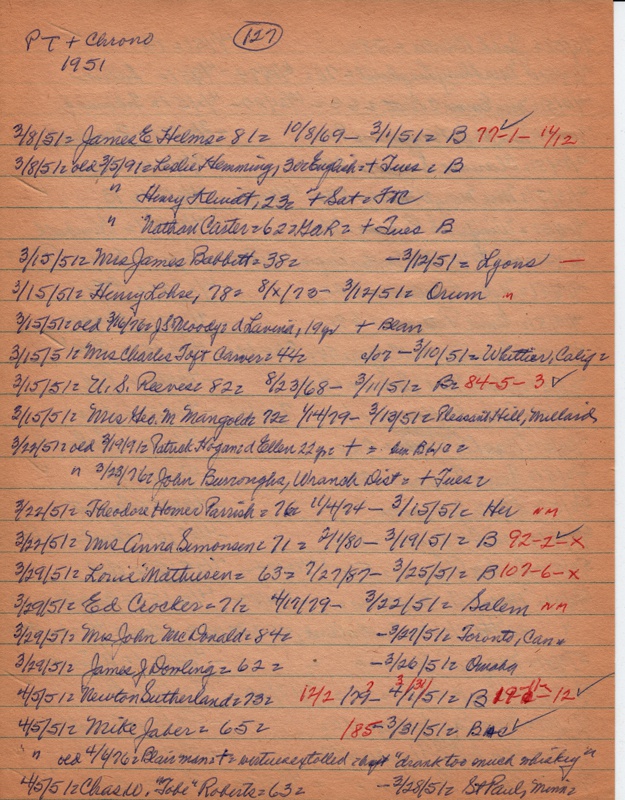 PT + Chrono 127
1951
3/8/51= James E Helms= 81= 10/8/69- 3/1/51= B 77-1- 14/12
3/8/51= old 3/5/91= Leslie Hemming, 30= English= + Tues = B
" Henry 23= + Sat =
" Nathan Carter= 62= GAR= + Tues B
3/15/51= Mrs James Babbitt= 38= -3/12/51= Lyons —
3/15/51= Henry Lohse, 78= 8/x/73- 3/12/51= Orum "
3/15/51= old 3/16/76= JS Moody= d Lavina, 19yr + Bean
3/15/51= Mrs Charles Toft Carver= 44= c/o? -3/10/51= Whittier, Calif=
3/15/51= U.S. Reeves= 82= 8/23/68- 3/11/51= B= 84-5- 3 ✓
3/15/51= Mrs Geo. M Mangold= 72= 1/14/79- 3/13/51= Pleasant Hill, Millard
3/22/51= old 3/19/91= Patrick Hogan= d Ellen 22yr= + =
" 3/23/76= John Burroughs, Wranch Dist= + Tues=
3/22/51= Theodore Homer Parrish= 76= 11/4/74- 3/15/51= Her NM
3/22/51= Mrs Anna Simonsen= 71= 2/1/80- 3/19/51= B 92-2-x
3/29/51= Louie Mathiesen= 63= 7/27/87- 3/25/51= B 107-6-x
3/29/51= Ed Crocker= 71= 4/17/79- 3/22/51= Salem NM
3/29/51= Mrs John McDonald= 84= -3/27/51= Toronto, Can=
3/29/51= James J. Dowling= 62= -3/26/51= Omaha
4/5/51= Newton Sutherland= 73= 12/2 /79- 4/1/51= B 12 ✓
4/5/51= Mike Jaber= 65= 185- 3/31/51=
" old 4/4/76= Blair man= += virtues extolled "drank too much whiskey"
4/5/51= Chas W. "Tobe" Roberts= 63= -3/28/51= St Paul, Minn=